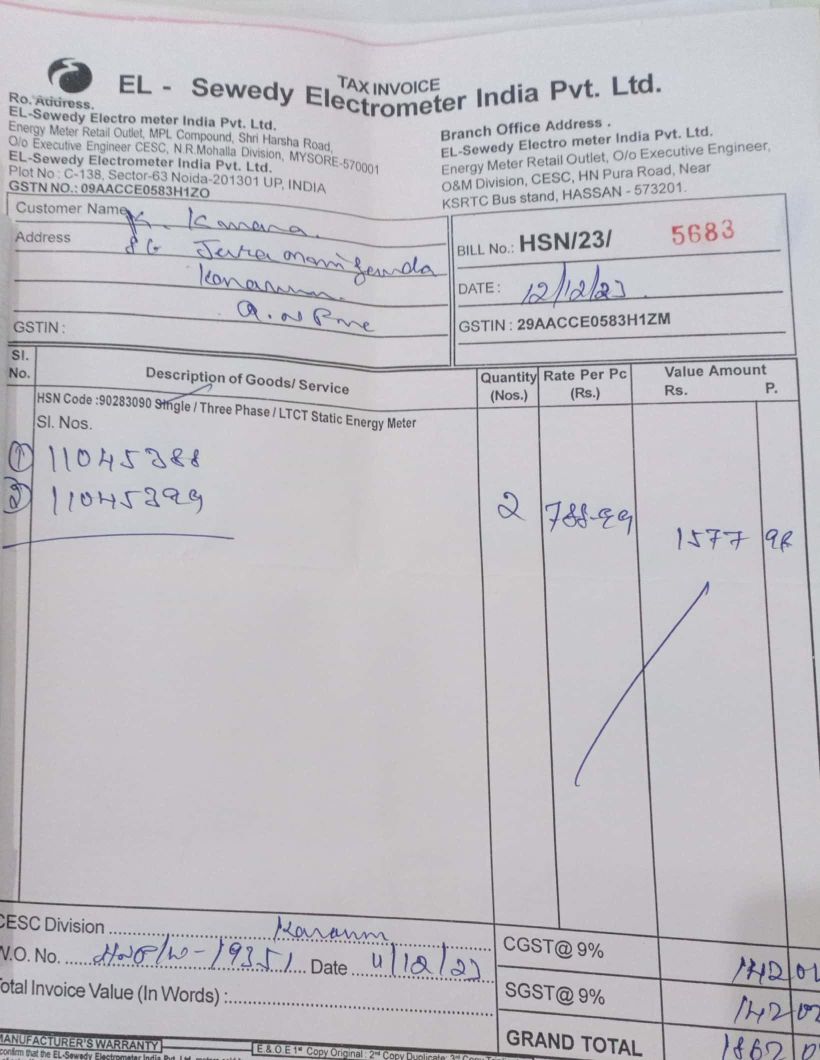 TAX INVOICE
EL - Sewedy Electrometer India Pvt. Ltd.
Ro. Address.
EL-Sewedy Electro meter India Pvt. Ltd.
Energy Meter Retail Outlet, MPL Compound, Shri Harsha Road,
O/o Executive Engineer CESC, N.R.Mohalla Division, MYSORE-570001
EL-Sewedy Electrometer India Pvt. Ltd.
Plot No : C-138, Sector-63 Noida-201301 UP, INDIA
GSTN NO.: 09AACCE0583H1ZO
Branch Office Address .
EL-Sewedy Electro meter India Pvt. Ltd.
Energy Meter Retail Outlet, O/o Executive Engineer,
O&M Division, CESC, HN Pura Road, Near
KSRTC Bus stand, HASSAN - 573201.
Customer Name K.
Address
GSTIN :
BILL No.: HSN/23/ 5683
DATE : 12/12/23
GSTIN : 29AACCE0583H1ZM
Sl. No. Description of Goods/ Service Quantity (Nos.) Rate Per Pc (Rs.) Value Amount Rs. P.
HSN Code :90283090 Single / Three Phase / LTCT Static Energy Meter
Sl. Nos.
1 11045388
2 11045399
2 788-99 1577 98
CESC Division
W.O. No. 19351 Date 11/12/23
Total Invoice Value (In Words) :
CGST@ 9% 142 01
SGST@ 9% 142 02
GRAND TOTAL 1862 0
MANUFACTURER'S WARRANTY
E.& O.E 1st Copy Original : 2nd Copy Duplicate: 3rd Copy
confirm that the EL-Sewedy Electrometer India Pvt. Ltd.